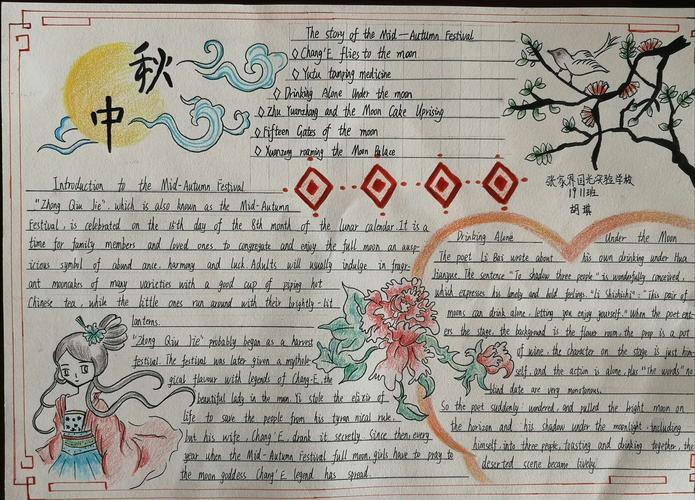 秋
中
The story of the Mid—Autumn Festival
◇ Chang'E flies to the moon
◇ Yutu tamping medicine
◇ Drinking Alone Under the moon
◇ Zhu Yuanzhang and the Moon Cake Uprising
◇ Fifteen Gates of the moon
◇ Xuanzong roaming the Moon Palace
张家界国光实验学校
1911班
胡琪
Introduction to the Mid-Autumn Festival
"Zhong Qiu Jie", which is also known as the Mid-Autumn
Festival, is celebrated on the 15th day of the 8th month of the lunar calendar. It is a
time for family members and loved ones to congregate and enjoy the full moon an ausp-
icious symbol of abund ance, harmony and luck. Adults will usually indulge in fragr-
ant mooncakes of many varieties with a good cup of piping hot
Chinese tea, while the little ones run around with their brightly-lit
lanterns.
"Zhong Qiu Jie" probably began as a harvest
festival. The festival was later given a mytholo-
gical flavour with legends of Chang-E, the
beautiful lady in the moon. Yi stole the elixir of
life to save the people from his tyran nical rule,
but his wife, Chang'E, drank it secretly. Since then, every
year when the Mid-Autumn Festival full moon, girls have to pray to
the moon goddess Chang'E legend has spread.
Drinking Alone Under the Moon
The poet Li Bai wrote about his own drinking under Hua
tianque. The sentence "To shadow three people" is wonderfully conceived,
which expresses his lonely and bold feelings. "Li Shizhishi": "This pair of
moons can drink alone, letting you enjoy yourself." When the poet ent-
ers the stage, the background is the flower room, the prop is a pot
of wine, the character on the stage is just him
self, and the action is alone, plus "the words" no
blind date are very monotonous.
So the poet suddenly wondered, and pulled the bright moon on
the horizon and his shadow under the moonlight, including
himself, into three people, toasting and drinking together, the
deserted scene became lively.